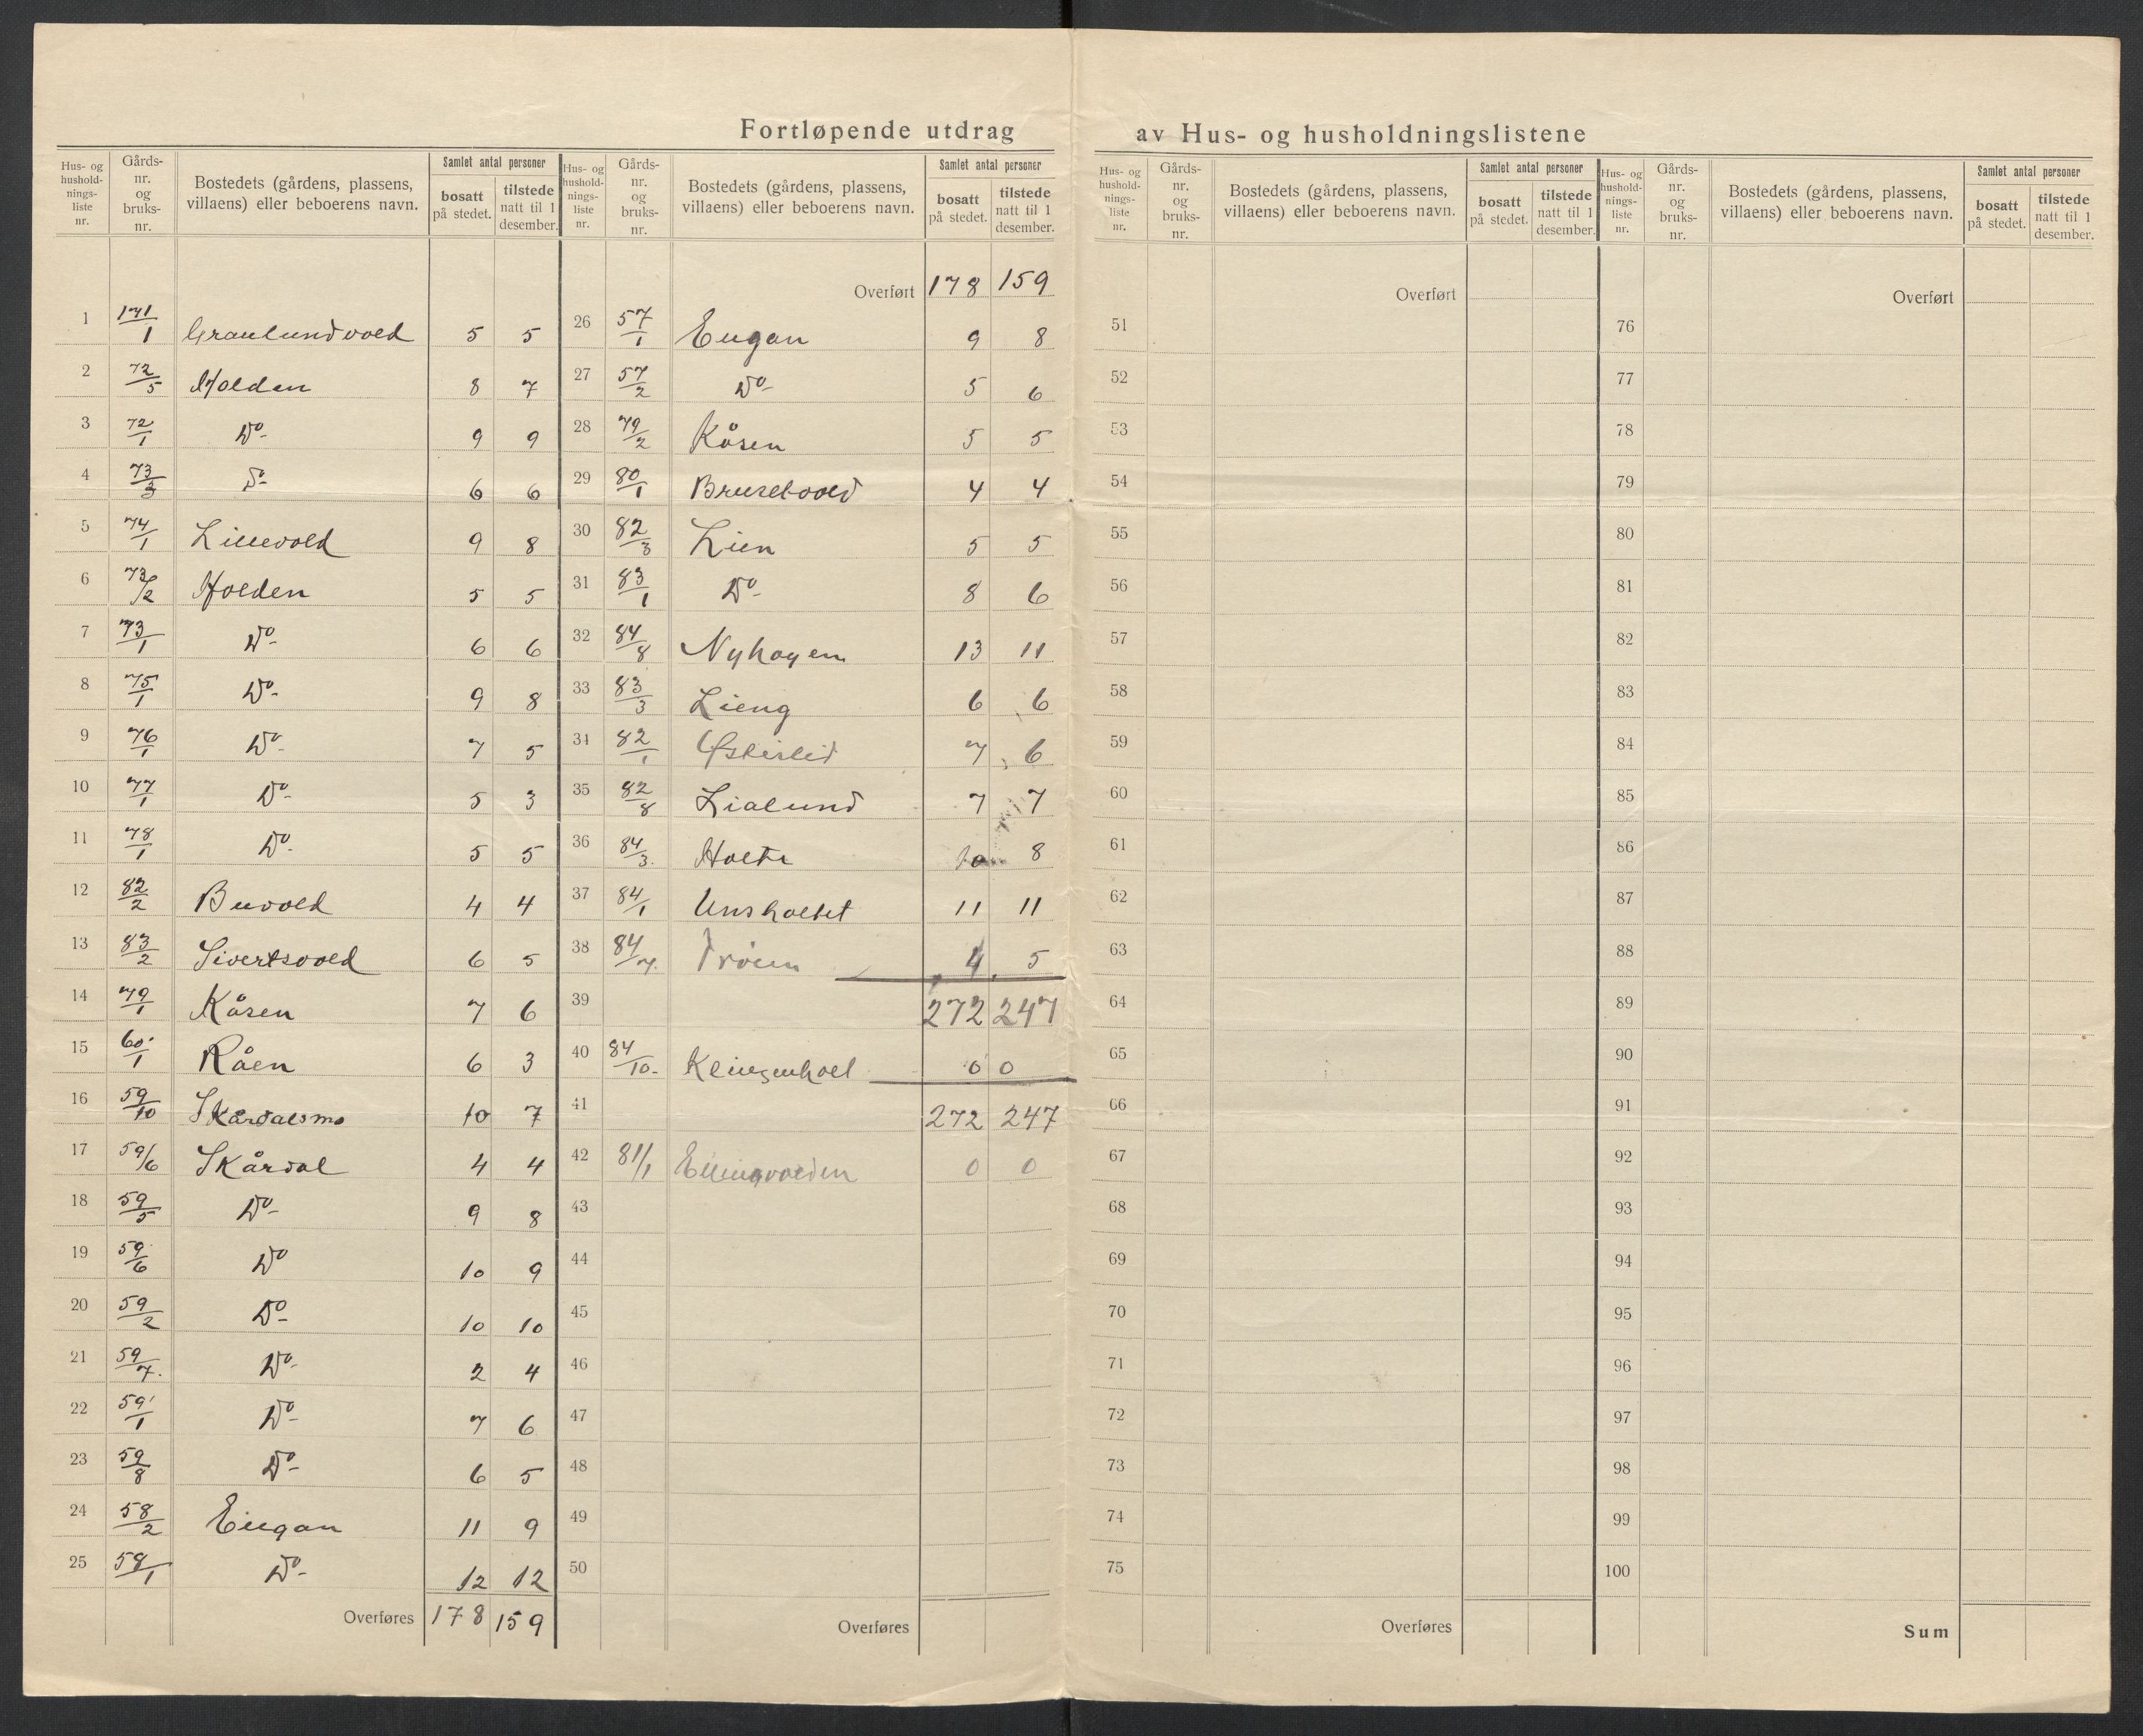 Fortløpende utdrag av Hus- og husholdningslistene
Hus- og hushold-nings-liste nr. | Gårds-nr. og bruks-nr. | Bostedets (gårdens, plassens, villaens) eller beboerens navn. | Samlet antal personer | bosatt på stedet. | tilstede natt til 1 desember.
1 171/1 Graulundvold 5 5
2 72/5 Holden 8 7
3 72/1 Do- 9 9
4 73/3 Do- 6 6
5 74/1 Lillevold 9 8
6 73/2 Holden 5 5
7 73/1 Do- 6 6
8 75/1 Do- 9 8
9 76/1 Do- 7 5
10 77/1 Do- 5 3
11 78/1 Do- 5 5
12 82/2 Buvold 4 4
13 83/2 Sivertsvold 6 5
14 79/1 Kåsen 7 6
15 60/1 Råen 6 3
16 59/10 Skårdalsmo 10 7
17 59/6 Skårdal 4 4
18 59/5 Do- 9 8
19 59/6 Do 10 9
20 59/2 Do- 10 10
21 59/7. Do- 2 4
22 59/1 Do- 7 6
23 59/8 Do- 6 5
24 58/2 Eugan 11 9
25 58/1 Do- 12 12
Overføres 178 159
Hus- og hushold-nings-liste nr. | Gårds-nr. og bruks-nr. | Bostedets (gårdens, plassens, villaens) eller beboerens navn. | Samlet antal personer | bosatt på stedet. | tilstede natt til 1 desember.
Overført 178 159
26 57/1 Eugan 9 8
27 57/2 Do- 5 6
28 79/2 Kåsen 5 5
29 80/1 Brusetvold 4 4
30 82/3 Lien 5 5
31 83/1 Do- 8 6
32 84/8 Nyhagen 13 11
33 83/3 Lieng 6 6
34 82/1 Østerlid 7 6
35 82/8 Lialund 7 7
36 84/3. Holte 10 8
37 84/1 Unsholtet 11 11
38 84/7. Trøen 4 5
39 272 247
40 84/10. Klingenhoel 0 0
41 272 247
42 81/1 Ellingvolden 0 0
43
44
45
46
47
48
49
50
Overføres
Hus- og hushold-nings-liste nr. | Gårds-nr. og bruks-nr. | Bostedets (gårdens, plassens, villaens) eller beboerens navn. | Samlet antal personer | bosatt på stedet. | tilstede natt til 1 desember.
Overført
51
52
53
54
55
56
57
58
59
60
61
62
63
64
65
66
67
68
69
70
71
72
73
74
75
Overføres
Hus- og hushold-nings-liste nr. | Gårds-nr. og bruks-nr. | Bostedets (gårdens, plassens, villaens) eller beboerens navn. | Samlet antal personer | bosatt på stedet. | tilstede natt til 1 desember.
Overført
76
77
78
79
80
81
82
83
84
85
86
87
88
89
90
91
92
93
94
95
96
97
98
99
100
Sum